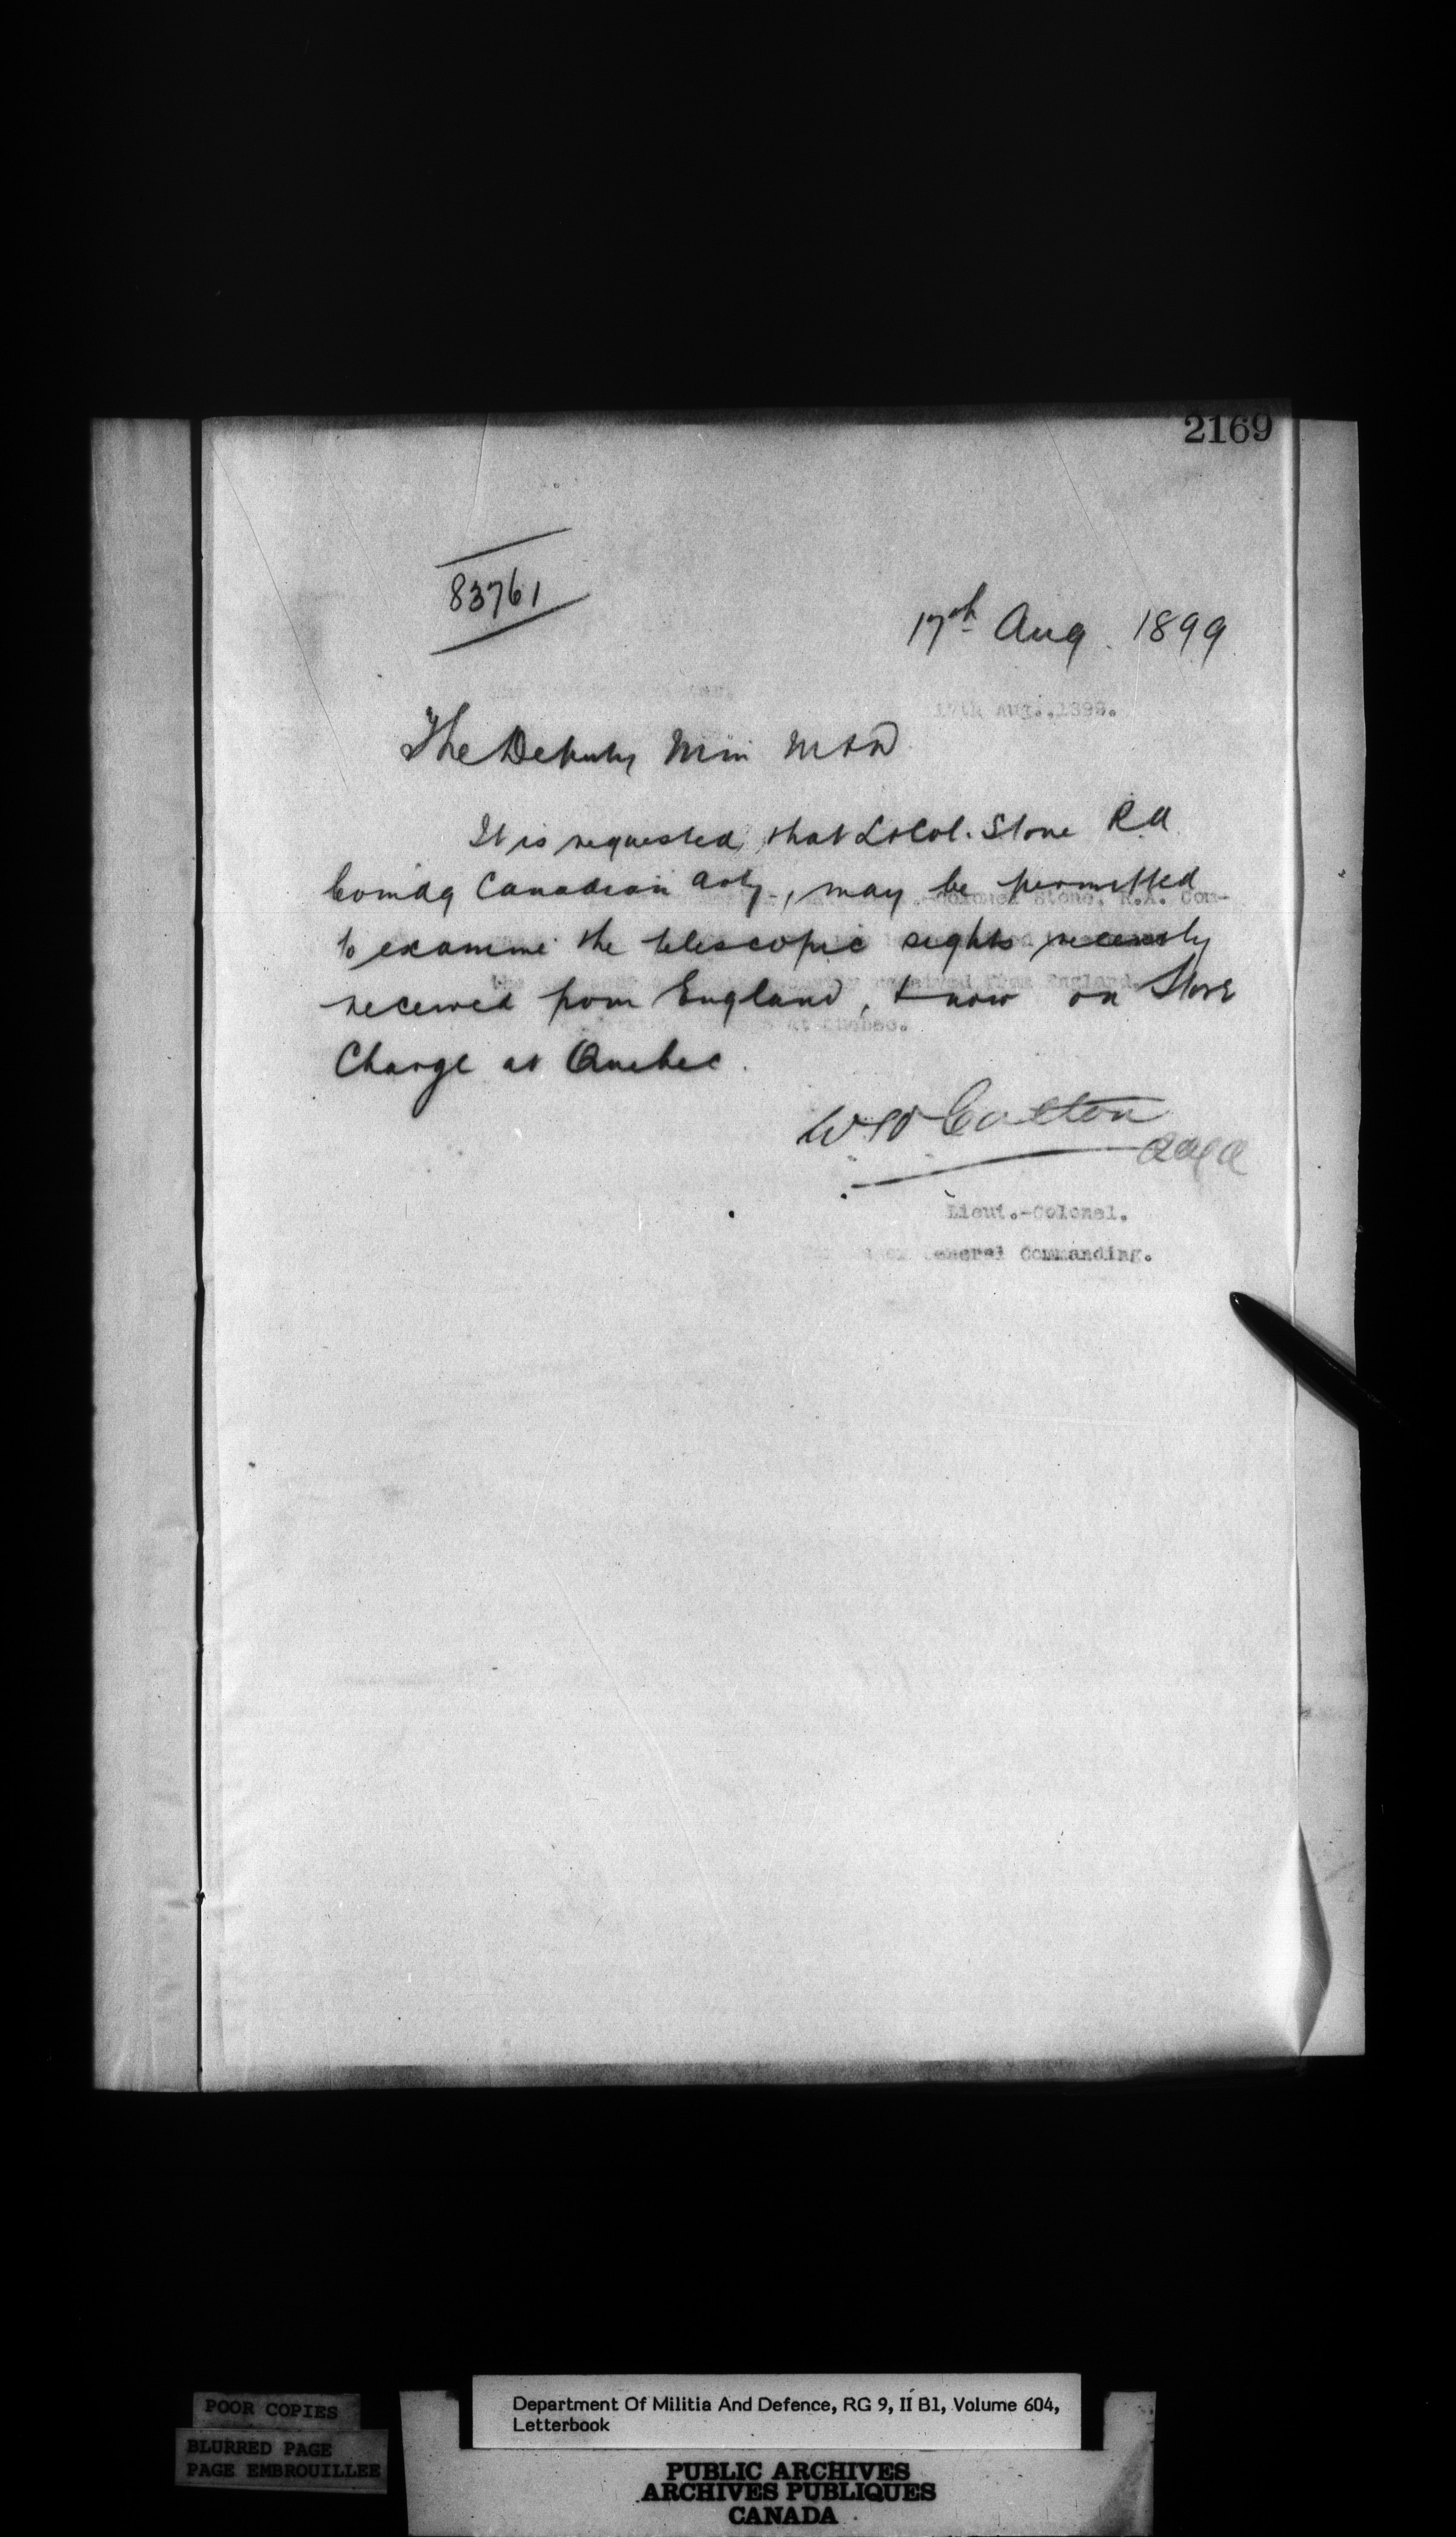 2169
83761
17th Aug. 1899
17th Aug., 1899.
The Deputy Min M & D
It is requested, that Lt Col. Stone RA
Comdg Canadian Arty, may be permitted
Colonel Stone, R.A. Com-
to examine the telescopic sights recently
received from England, & now on Store
received from England
at Quebec.
Charge at Quebec.
W H Cotton
AAGA
Lieut.-Colonel.
General Commanding.
POOR COPIES
BLURRED PAGE
PAGE EMBROUILLEE
Department Of Militia And Defence, RG 9, II B1, Volume 604,
Letterbook
PUBLIC ARCHIVES
ARCHIVES PUBLIQUES
CANADA